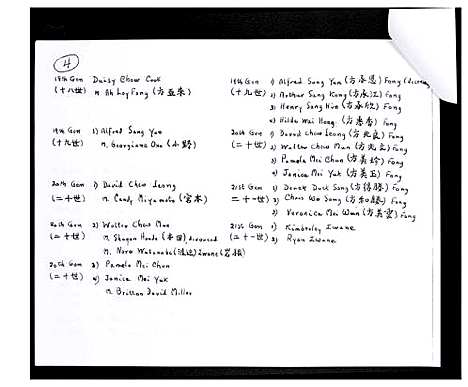 4
18th Gen Daisy Chow Cook
(十八世) m. Ah Loy Fong (方亚来)
19th Gen 1) Alfred Sang Yen
(十九世) m. Georgiana
20th Gen 1) David Chew Leong
(二十世) m. Candy Miyamoto (宮本)
20th Gen 2) Walter Chew Mun
(二十世) m. Sharon Honda (本田) divorced
m. Nora Watanabe (渡辺) Iwane (岩根)
20th Gen 3) Pamela Mei Chun
(二十世) 4) Janice Mei Yuk
m. Britton David Miller
19th Gen 1) Alfred Sang Yen Fong
(十九世) 2) Arthur Sang Kong (方永江) Fong
3) Henry Sang Hin Fong
4) Hilda Wai Hong (方惠香) Fong
20th Gen 1) David Chew Leong (方兆良) Fong
(二十世) 2) Walter Chew Mun (方兆文) Fong
3) Pamela Mei Chun (方美珍) Fong
4) Janice Mei Yuk (方美玉) Fong
21st Gen 1) Derek Duck Sang (方德勝) Fong
(二十一世) 2) Chris Wo Sang Fong
3) Veronica Mei Wun (方美雲) Fong
21st Gen 1) Kimberley Iwane
(二十一世) 2) Ryan Iwane